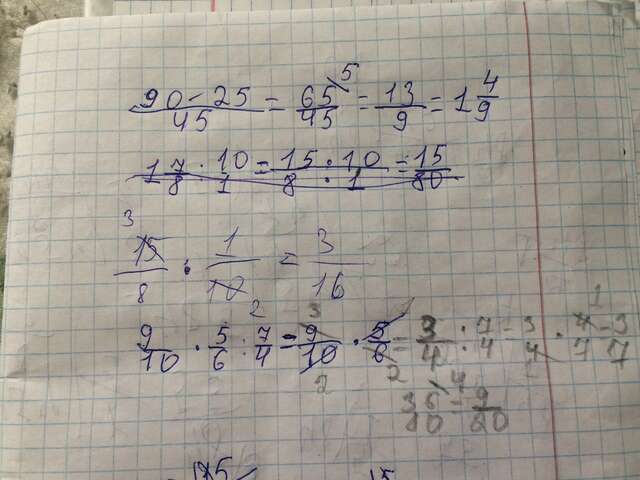 (90-25)/45 = 65/45 = 13/9 = 1 4/9
1 7/8 · 10/1 = 15·10/8·1 = 15/80
15/8 : 1/10 = 3/16
9/10 · 5/6 : 7/4 = 9/10 · 5/6 = 3/4 : 7/4 = 3/4 · 4/7 = 3/7
36/80 = 9/80